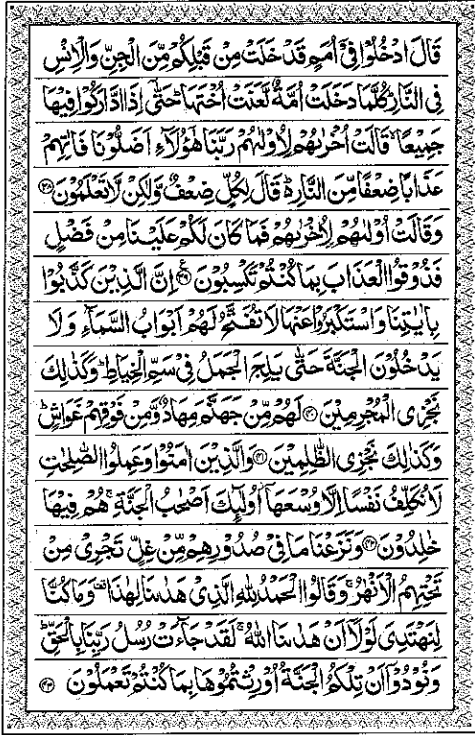 قَالَ ادْخُلُوْا فِیْۤ اُمَمٍ قَدْ خَلَتْ مِنْ قَبْلِكُمْ مِّنَ الْجِنِّ وَالْاِنْسِ
فِی النَّارِ كُلَّمَا دَخَلَتْ اُمَّةٌ لَّعَنَتْ اُخْتَهَا حَتّٰۤی اِذَا ادَّارَكُوْا فِیْهَا
جَمِیْعًا قَالَتْ اُخْرٰىهُمْ لِاُوْلٰىهُمْ رَبَّنَا هٰۤؤُلَآءِ اَضَلُّوْنَا فَاٰتِهِمْ
عَذَابًا ضِعْفًا مِّنَ النَّارِ۬ قَالَ لِكُلٍّ ضِعْفٌ وَّلٰكِنْ لَّا تَعْلَمُوْنَ ۝۳۸
وَقَالَتْ اُوْلٰىهُمْ لِاُخْرٰىهُمْ فَمَا كَانَ لَكُمْ عَلَیْنَا مِنْ فَضْلٍ
فَذُوْقُوا الْعَذَابَ بِمَا كُنْتُمْ تَكْسِبُوْنَ ۝۳۹ اِنَّ الَّذِیْنَ كَذَّبُوْا
بِاٰیٰتِنَا وَاسْتَكْبَرُوْا عَنْهَا لَا تُفَتَّحُ لَهُمْ اَبْوَابُ السَّمَآءِ وَلَا
یَدْخُلُوْنَ الْجَنَّةَ حَتّٰی یَلِجَ الْجَمَلُ فِیْ سَمِّ الْخِیَاطِ ؕ وَكَذٰلِكَ
نَجْزِی الْمُجْرِمِیْنَ ۝۴۰ لَهُمْ مِّنْ جَهَنَّمَ مِهَادٌ وَّمِنْ فَوْقِهِمْ غَوَاشٍ ؕ
وَكَذٰلِكَ نَجْزِی الظّٰلِمِیْنَ ۝۴۱ وَالَّذِیْنَ اٰمَنُوْا وَعَمِلُوا الصّٰلِحٰتِ
لَا نُكَلِّفُ نَفْسًا اِلَّا وُسْعَهَاۤ اُولٰٓىِٕكَ اَصْحٰبُ الْجَنَّةِ ۚ هُمْ فِیْهَا
خٰلِدُوْنَ ۝۴۲ وَنَزَعْنَا مَا فِیْ صُدُوْرِهِمْ مِّنْ غِلٍّ تَجْرِیْ مِنْ
تَحْتِهِمُ الْاَنْهٰرُ ۚ وَقَالُوا الْحَمْدُ لِلّٰهِ الَّذِیْ هَدٰىنَا لِهٰذَا ۫ وَمَا كُنَّا
لِنَهْتَدِیَ لَوْلَاۤ اَنْ هَدٰىنَا اللّٰهُ ۚ لَقَدْ جَآءَتْ رُسُلُ رَبِّنَا بِالْحَقِّ ؕ
وَنُوْدُوْۤا اَنْ تِلْكُمُ الْجَنَّةُ اُوْرِثْتُمُوْهَا بِمَا كُنْتُمْ تَعْمَلُوْنَ ۝۴۳